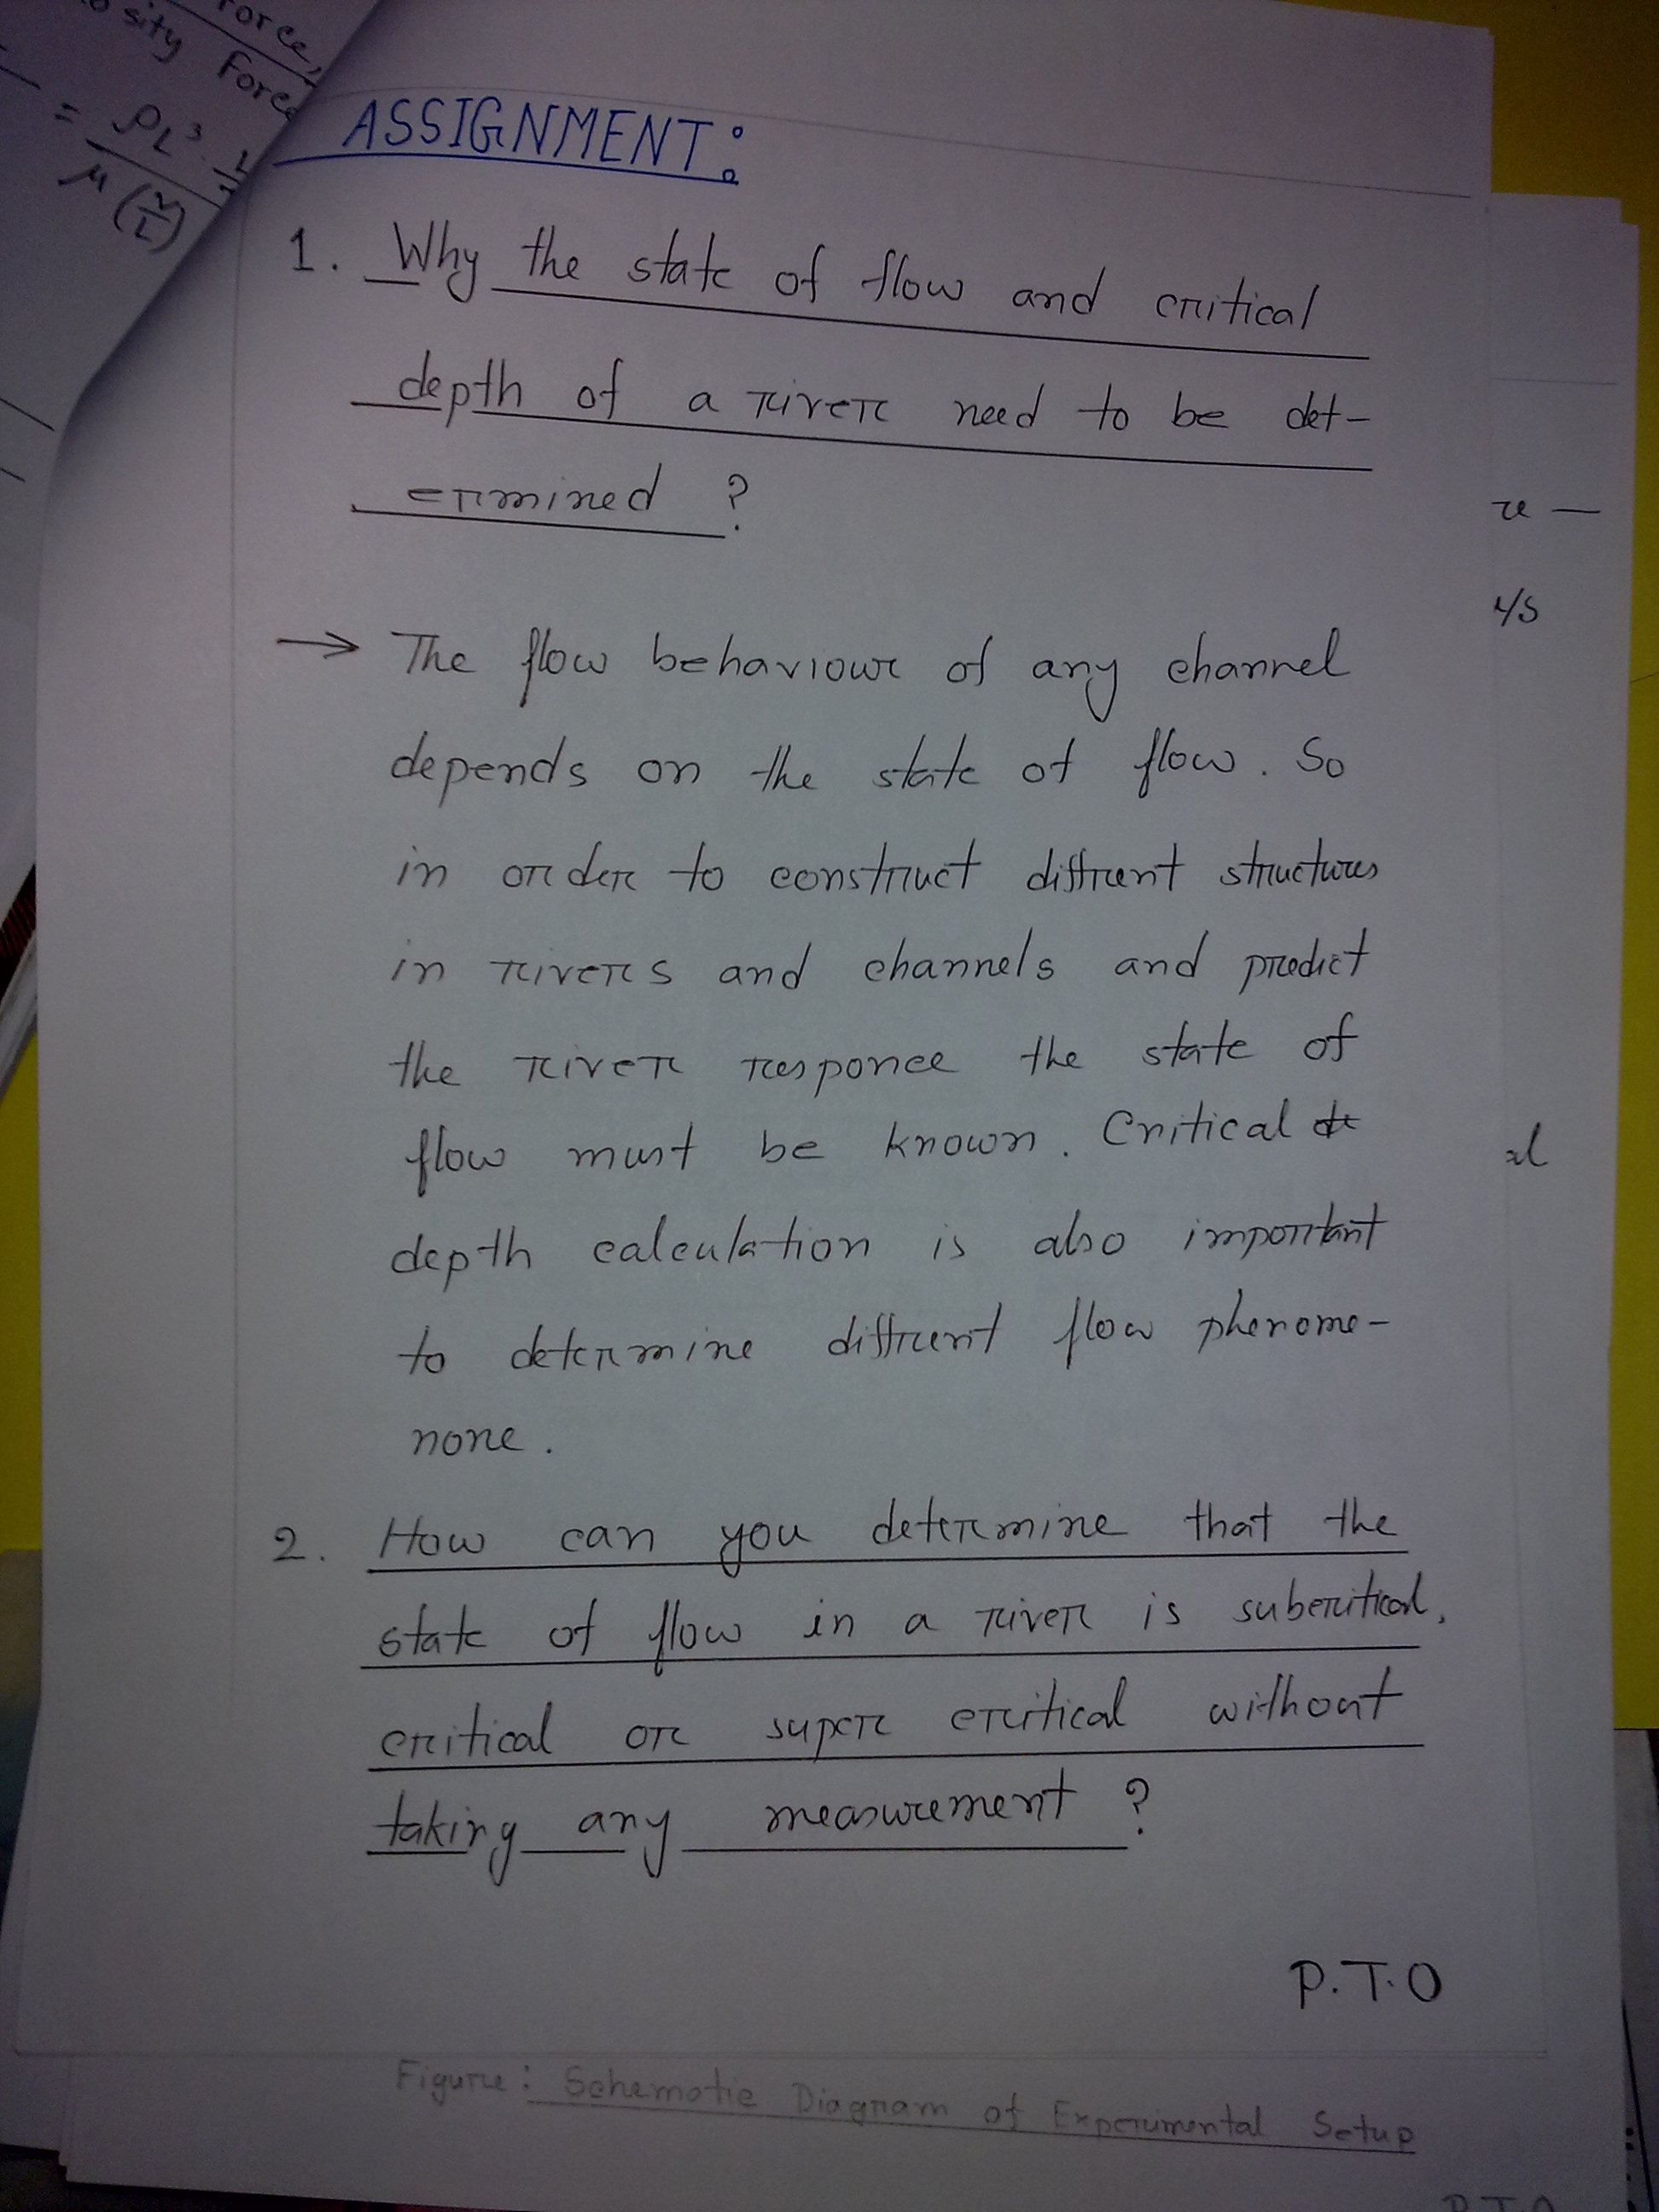 orce,
sity Force
= ρL³ . 
μ (
ASSIGNMENT:
1. Why the state of flow and critical
depth of a river need to be det-
ermined ?
→ The flow behaviour of any channel
depends on the state of flow. So
in order to construct diffrent structures
in rivers and channels and predict
the river responce the state of
flow must be known. Critical
depth calculation is also important
to determine diffrent flow phenome-
none.
2. How can you determine that the
state of flow in a river is subcritical,
critical or super critical without
taking any measurement ?
P.T.O
Figure: Schematic Diagram of Experimental Setup
P.T.O